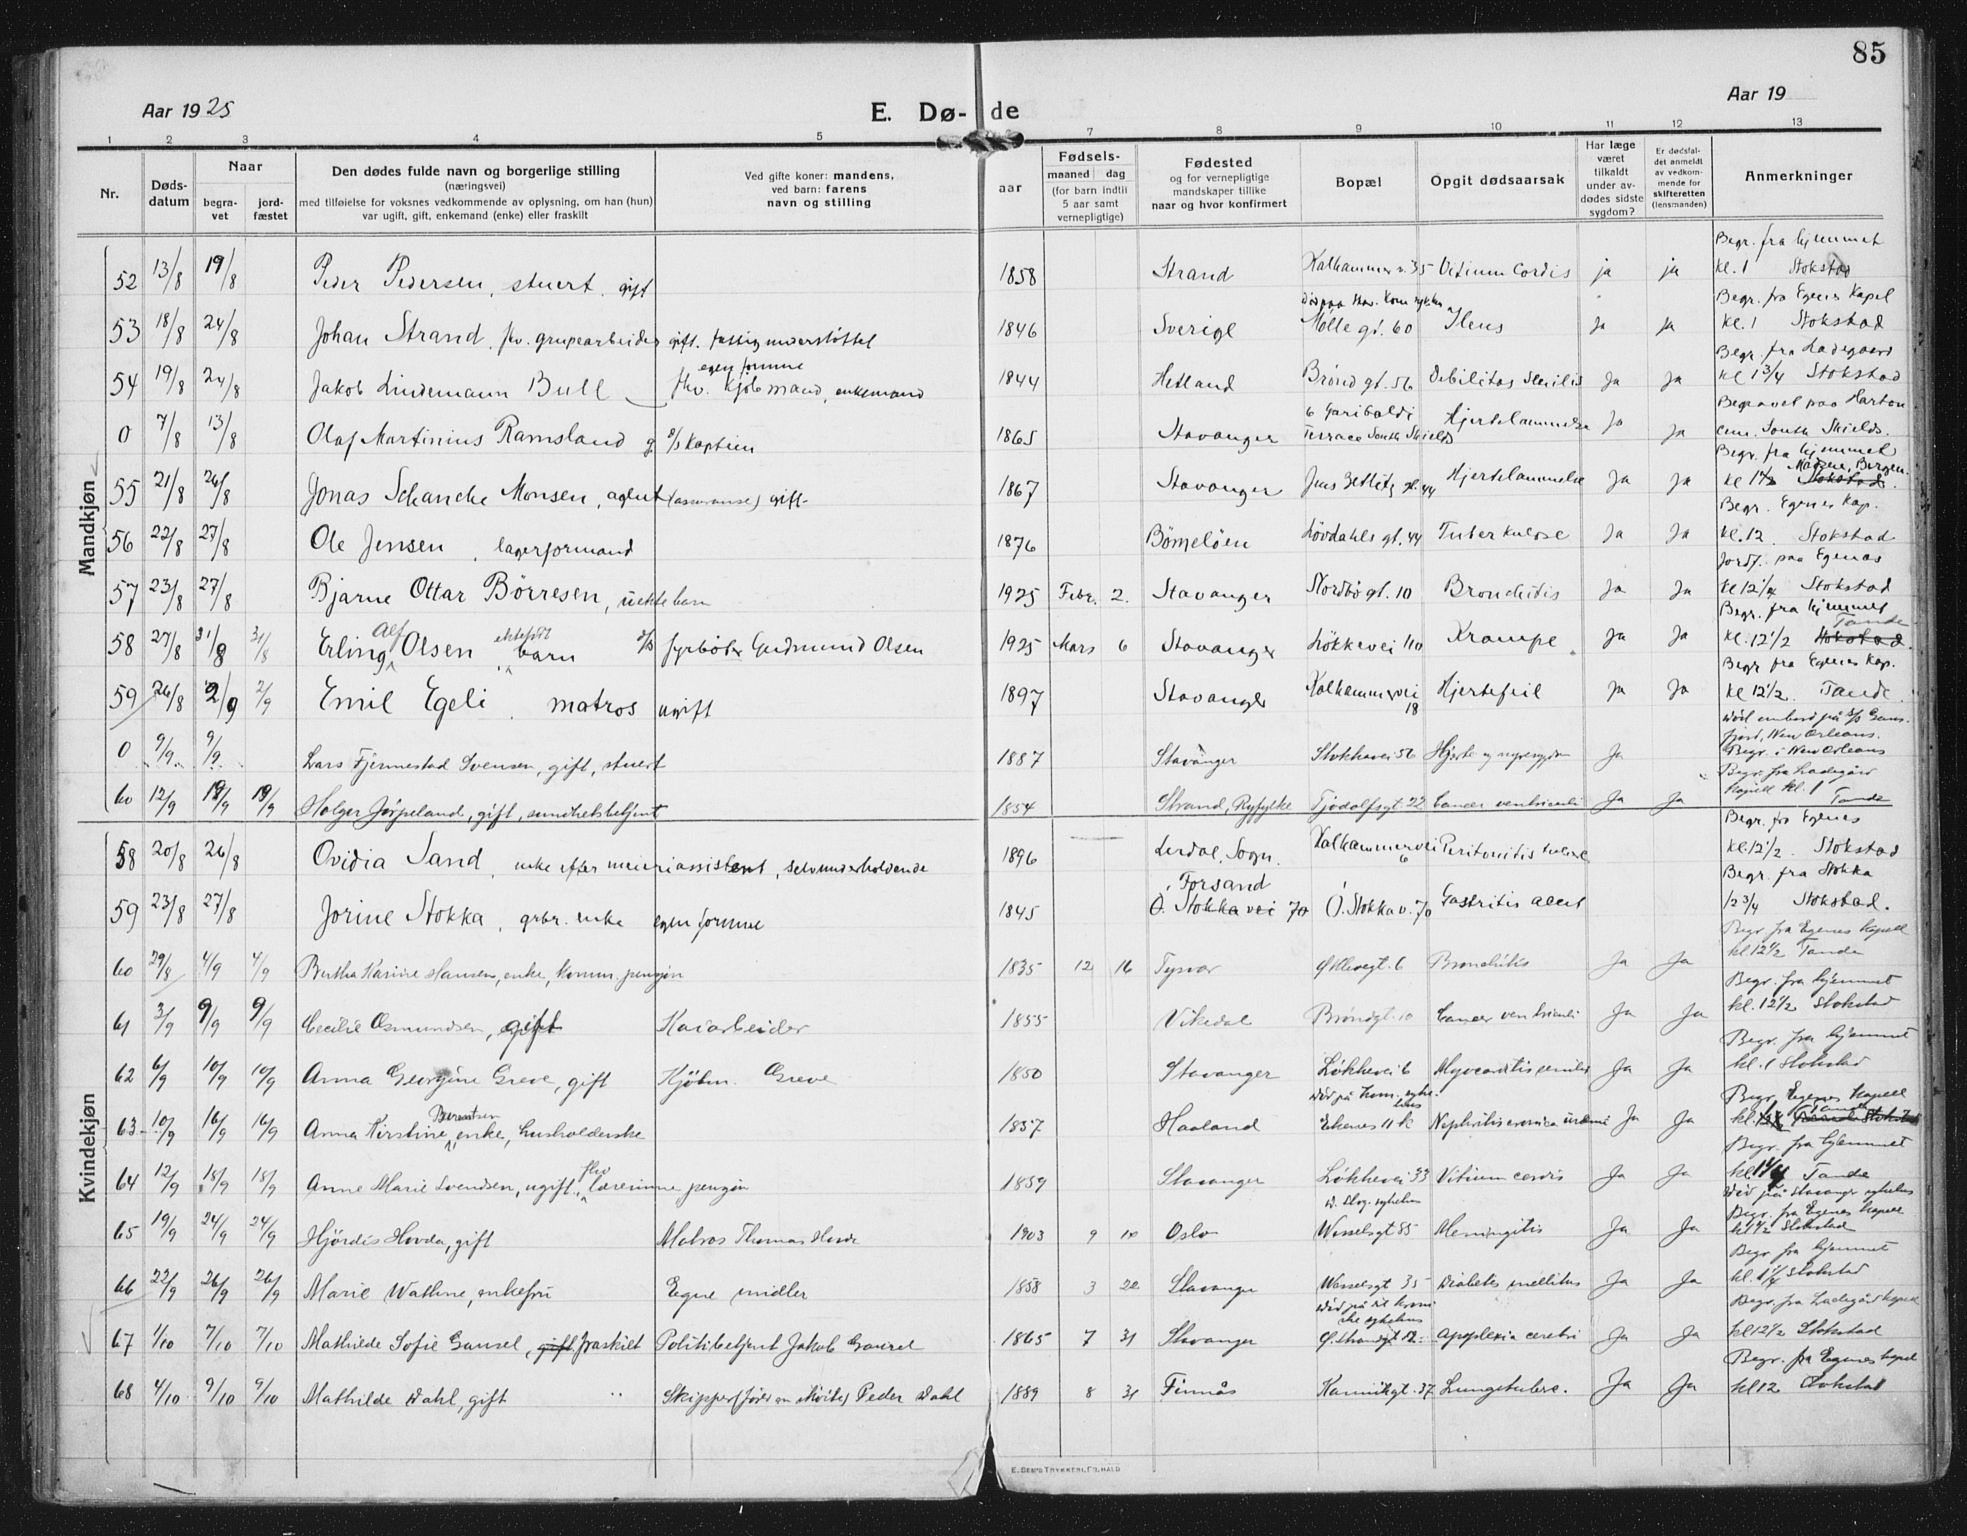 85
Aar 1925
E. Dø- de
Aar 19
1 2 3 4 5 6 7 8 9 10 11 12 13
Nr.
Døds-datum
Naar
begra-vet
jord-fæstet
Den dødes fulde navn og borgerlige stilling
(næringsvei)
med tilføielse for voksnes vedkommende av oplysning, om han (hun)
var ugift, gift, enkemand (enke) eller fraskilt
Ved gifte koner: mandens,
ved barn: farens
navn og stilling
Fødsels-
aar
maaned dag
(for barn indtil
5 aar samt
vernepligtige)
Fødested
og for vernepligtige
mandskaper tillike
naar og hvor konfirmert
Bopæl
Opgit dødsaarsak
Har læge
været
tilkaldt
under av-
dødes sidste
sygdom?
Er dødsfal-
det anmeldt
av vedkom-
mende for
skifteretten
(lensmanden)
Anmerkninger
Mandkjøn
52 13/8 19/8 Peder Pedersen, stuert, gift 1858 Strand Kalhammerv. 35 Vitium Cordis ja ja Begr. fra hjemmet kl. 1 Stokstad
53 18/8 24/8 Johan Strand, fhv. grupearbeider gift. fattigunderstøttet 1846 Sverige Mølle gt. 60 Ileus Ja Ja Begr. fra Egenes Kapel kl. 1 Stokstad
54 19/8 24/8 Jakob Lindemann Bull fhv. kjøbmand, enkemand egen formue 1844 Hetland Brønd gt. 56 Debilitas Senilis Ja Ja Begr. fra Ladegaard kl 1 3/4 Stokstad
0 7/8 13/8 Olaf Martinius Ramsland g s/s Kaptein 1865 Stavanger 6 Garibaldi Terrace South Shields Hjertelammelse Ja Ja Begravet paa Harton cem. South Shields.
55 21/8 26/8 Jonas Schancke Monsen, agent (assuranse) gift 1867 Stavanger Jens Zetlitz gt. 44 Hjertelammelse Ja Ja Begr. fra hjemmet kl 1 1/2 Stokstad Bergen.
56 22/8 27/8 Ole Jensen, lagerformand 1876 Bømeløen Løvdahls gt. 44 Tuberkulose Ja Ja Begr. Egenes Kap. kl. 12 Stokstad
57 23/8 27/8 Bjarne Ottar Børresen, uekte barn 1925 Febr. 2. Stavanger Nordbø gt. 10 Bronchitis Ja Ja Jordf. paa Egenes kl 12 1/4 Stokstad
58 27/8 31/8 31/8 Erling Alf Olsen ektefødt barn fyrbøter Gudmund Olsen 1925 Mars 6 Stavanger Løkkevei 110 Krampe Ja Ja Begr. fra hjemmet kl. 12 1/2 Stokstad Tande
59 26/8 2/9 2/9 Emil Egeli, matros ugift 1897 Stavanger Kalhammervei 18 Hjertefeil Ja Ja Begr fra Egenes Kap. kl 12 1/2. Tande.
0 9/9 9/9 Lars Fjermestad Svensen, gift, stuert 1887 Stavanger Stokkavei 56 Hjerte og nyresygdom Ja Død ombord på S/S New Orleans. Begr. i New Orleans
60 12/9 19/9 19/9 Holger Jørpeland, gift, sundhetsbetjent 1854 Strand, Ryfylke Tjodolfsgt. 22 Cancer ventriculi Ja Ja Begr. fra Ladegård Kapell kl. 1 Tande
Kvindekjøn
58 20/8 26/8 Ovidia Sand, enke efter meieriassistent, selvunderholdende 1896 Lerdal, Sogn. Kalhammervei 6 Peritonitis Begr. fra Egenes kl. 12 1/2. Stokstad
59 23/8 27/8 Jorine Stokka, grbr. enke egen formue 1845 Forsand Ø. Stokka vei 70 Ø. Stokka v. 70 Gastritis acut Begr. fra Stokka 12 3/4 Stokstad.
60 29/8 4/9 4/9 Bertha Karine Hansen, enke, komm. pensjon 1835 12 16 Tysvær Bronchitis Ja Ja Begr. fra Egenes Kapell kl 12 1/2 Tande
61 3/9 9/9 9/9 Cecilie Osmundsen, gift Kaiarbeider 1855 Vikedal Brøndgt. 10 Cancer ventriculi Ja Ja Begr. fra hjemmet kl. 12 1/2 Stokstad
62 6/9 10/9 10/9 Anna Georgine Greve, gift Kjøbm. Greve 1850 Stavanger Løkkevei 6 Myocarditis senilis Ja Ja Begr. fra hjemmet kl. 1 Stokstad
63 10/9 16/9 16/9 Anna Kirstine Berentsen enke, husholderske 1857 Haaland Ekenes 11 k Ja Ja Begr. Egenes Kapell
64 12/9 18/9 18/9 Anne Marie Svendsen, ugift, fhv lærerinne pensjon 1859 Stavanger Løkkevei 33 Vitium cordis Ja Ja Begr. fra hjemmet kl 1 1/4 Tande
65 19/9 24/9 24/9 Hjørdis Hovda, gift Matros Thomas Hovda 1903 9 10 Oslo Wesselsgt 85 Meningitis Ja Ja Død på Stavanger sykehus Begr. fra Egenes Kapell kl 1 1/2 Stokstad
66 22/9 26/9 26/9 Marie Wathne, enkefru Egne midler 1858 3 22 Stavanger Wesselsgt 35 Diabetes mellitus Ja Ja Begr fra hjemmet kl. 1 1/4 Stokstad
67 1/10 7/10 7/10 Mathilde Sofie Gausel, gift fraskilt Politibetjent Jakob Gausel 1865 7 31 Stavanger Ø. Strandgt 52 Apoplexia cerebri Ja Ja Begr. fra Ladegård Kapell kl 12 1/2 Stokstad
68 4/10 9/10 9/10 Mathilde Dahl, gift Skipper Peder Dahl 1889 8 31 Finnås Kannikgt. 37 Lungetuberc. Ja Ja Begr. fra Egenes Kapel kl 12 Stokstad
E. SEM'S TRYKKERI, FR. HALD